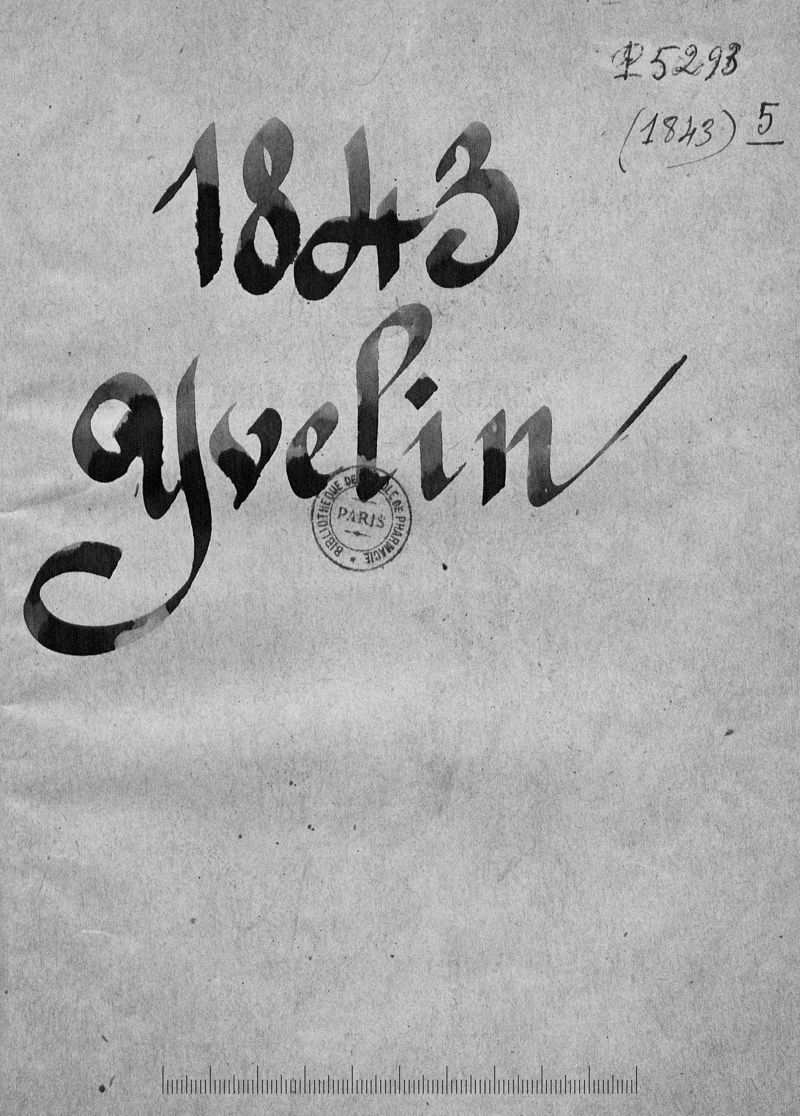 P 5293
(1843) 5
1843
Yvelin
BIBLIOTHÈQUE DE L'ÉCOLE DE PHARMACIE
PARIS